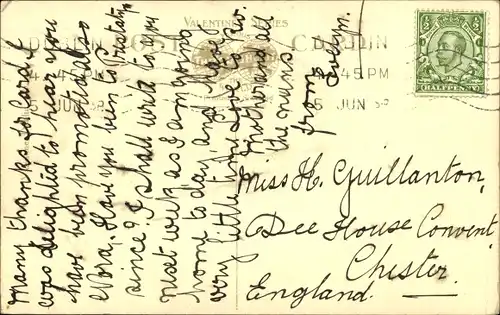 VALENTINE'S SERIES
POST CARD
DUBLIN
4.45 PM
5 JUN
DUBLIN
4.45 PM
5 JUN
HALFPENNY
Many thanks for Card I
was delighted to hear you
have been promoted also
Nora. Have you been to
since? I shall write to you
next week as I am going
home to day, and have
very little time. Love to Rev.
Mother and all
the nuns
from
Evelyn.
Miss H. Guillanton,
Dee House Convent,
Chester.
England.